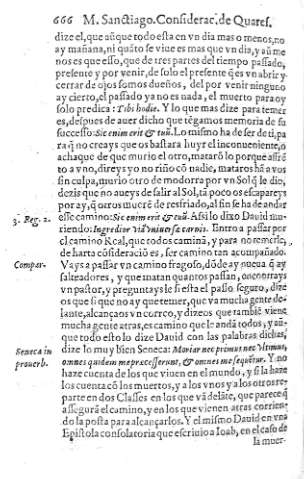 666 M. Sanctiago. Considerac. de Quares.
dize el, que aũque todo esta en vn dia mas o menos, no
ay mañana, ni quãto se viue es mas que vn dia, y aũ me
nos es que esso, que de tres partes del tiempo passado,
presente y por venir, de solo el presente q̃ es vn abrir y
cerrar de ojos somos dueños, del por venir ninguno
ay cierto, el passado ya no es nada, el muerto para oy
solo predica: Tibi hodie. Y lo que mas dize para temer
es, despues de auer dicho que tẽgamos memoria de su
successo: Sic enim erit & tuũ. Lo mismo ha de ser de ti, pa
ra q̃ no creays que os bastara huyr el inconueniente, o
achaque de que murio el otro, mataro lo porque affrẽ
to a vno, direys yo no riño cõ nadie, mataros hã a vos
sin culpa, murio otro de modorra por vn Sol q̃ le dio,
dezis que no aueys de salir al Sol, tã poco os escapareys
por ay, q̃ otros mucrẽ de resfriado, al fin se ha de andar
3. Reg. 2. esse camino: Sic enim erit & tuũ. Assi lo dixo Dauid mu-
riendo: Ingredior viã vniuersæ carnis. Entro a passar por
el camino Real, que todos caminã, y para no temerle,
de harta cõsideracio es, ser camino tan acompañado.
Compar. Vays a passar vn camino fragoso, dõde ay nueua q̃ ay
salteadores, y que matan quantos passan, encontrays
vn pastor, y preguntays le si esta el passo seguro, dize
os que si que no ay que temer, que va mucha gente de-
lante, alcançaos vn correo, y dizeos que tambiẽ viene
mucha gente atras, es camino que le andã todos, y aũ-
que todo esto lo dize Dauid con las palabras dichas,
Seneca in dize lo muy bien Seneca: Morior nec primus nec vltimus,
prouerb. omnes quidem me precesserunt, & omnes me sequẽtur. Y no
haze cuenta de los que viuen en el mundo, y si la haze
los cuenta cõ los muertos, y a los vnos y a los otros re
parte en dos Classes en los que vã delãte, que parece q̃
assegurã el camino, y en los que vienen atras corrien-
do la posta para alcançarlos. Y el mismo Dauid en vna
Epistola consolatoria que escriuio a Ioab, en el caso de
la muer-